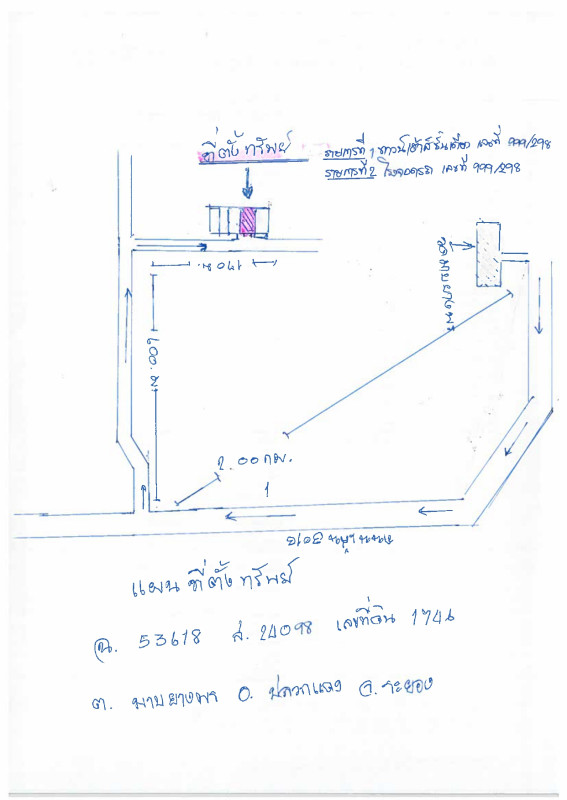 ที่ตั้งทรัพย์
รายการที่ 1 ทาวน์เฮ้าส์ชั้นเดียว เลขที่ 999/298
รายการที่ 2 โรงจอดรถ เลขที่ 999/298
170 ม.
600 ม.
2.00 กม.
1
แผนที่ตั้งทรัพย์
ฉ. 53618 ส. 24098 เลขที่ดิน 1746
ต. มาบยางพร อ. ปลวกแดง จ. ระยอง